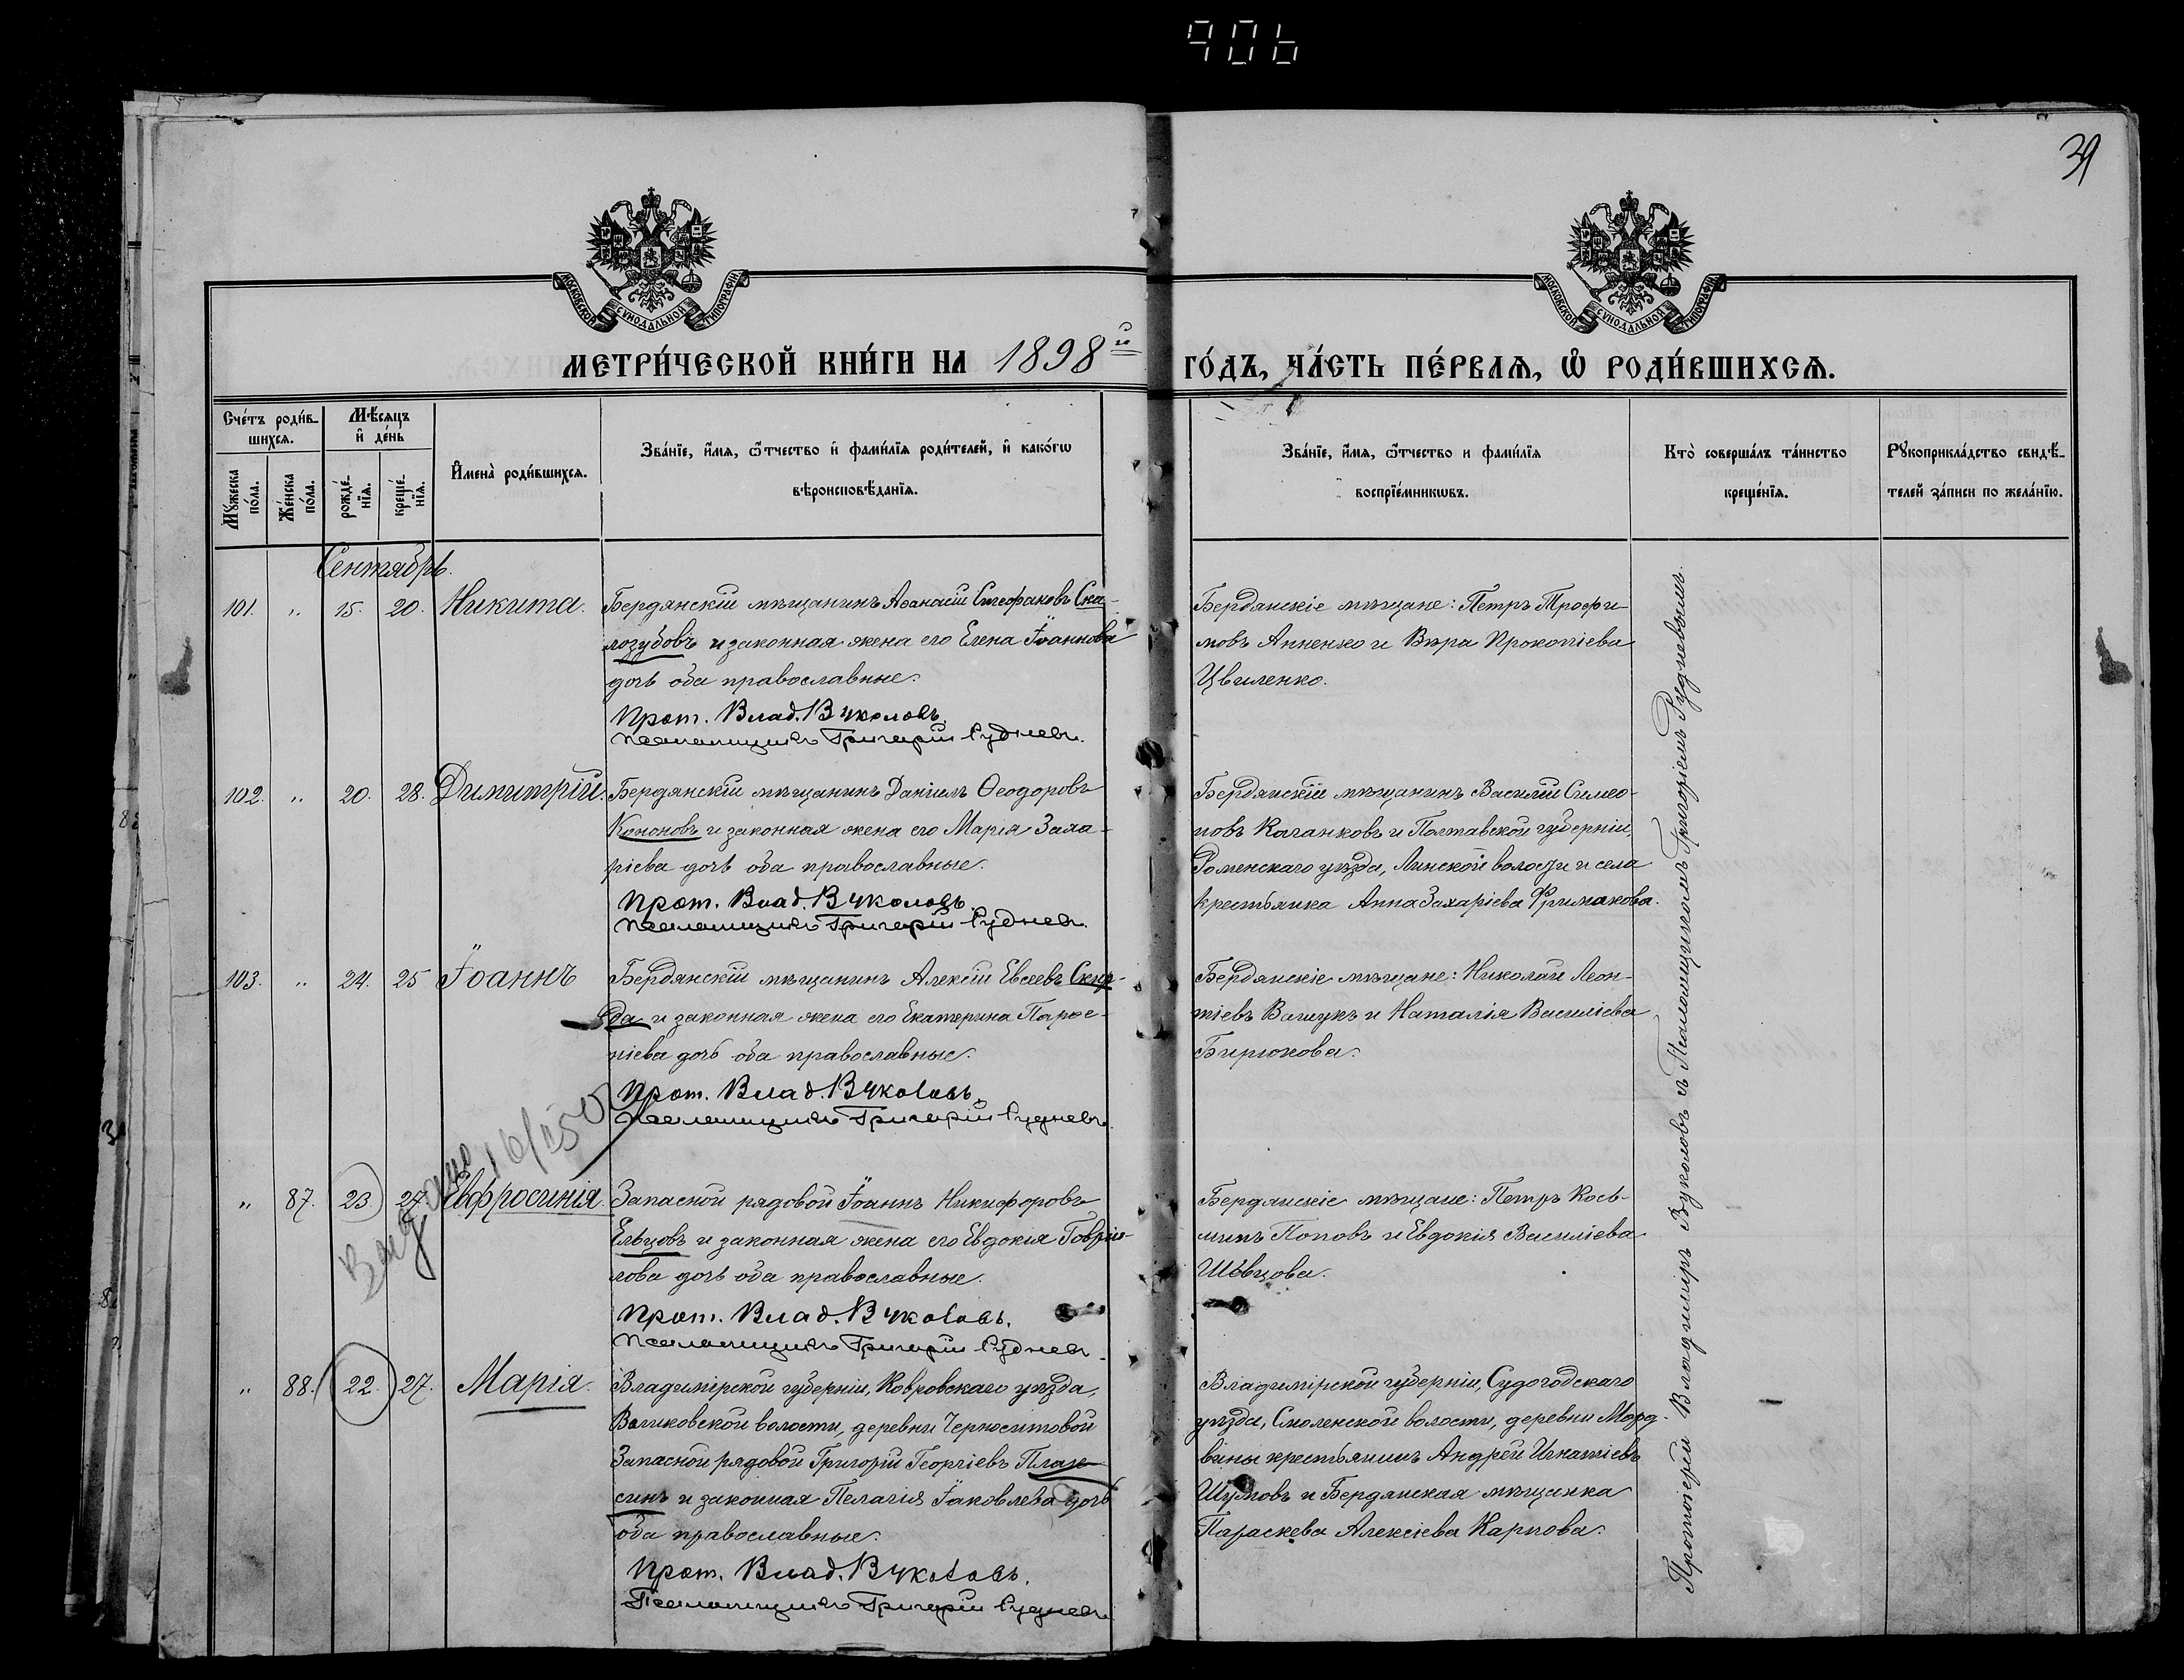 906
39
МОСКОВСКОЙ СѴНОДАЛЬНОЙ ТИПОГРАФІИ
МОСКОВСКОЙ СѴНОДАЛЬНОЙ ТИПОГРАФІИ
МЕТРИ́ЧЕСКОЙ КНИ́ГИ НА 1898й ГО́ДЪ, ЧА́СТЬ ПЕ́РВАѦ, Ѡ҆ РОДИ́ВШИХСѦ.
Сче́тъ роди́в-
шихсѧ.
Мꙋ́жеска по́ла.
Же́нска по́ла.
Мѣ́сѧцъ
и҆ де́нь
рожде́-
нїѧ.
креще́-
нїѧ.
И҆мена̀ роди́вшихсѧ.
Зва́нїе, и҆́мѧ, ѻ҆́тчество и҆ фами́лїѧ роди́телей, и҆ како́гѡ
вѣроисповѣ́данїѧ.
Зва́нїе, и҆́мѧ, ѻ҆́тчество и фами́лїѧ
воспрїе́мникѡвъ.
Кто̀ соверша́лъ та́инство
креще́нїѧ.
Рꙋкоприкла́дство свидѣ́-
телей за́писи по жела́нїю.
Сентябрь.
101. " 15. 20. Никита.
Бердянскій мѣщанинъ Аѳанасій Стефановъ Ска-
лозубовъ и законная жена его Елена Іоаннова
дочь оба православные.
Прот. Влад. Вуколовъ.
Псаломщикъ Григорій Рудневъ.
Бердянскіе мѣщане: Петръ Трофи-
мовъ Анненко и Вѣра Прокопіева
Цвиленко.
102. " 20. 28. Димитрій.
Бердянскій мѣщанинъ Даніилъ Ѳеодоровъ
Кононовъ и законная жена его Марія Заха-
ріева дочь оба православные.
Прот. Влад. Вуколовъ.
Псаломщикъ Григорій Рудневъ.
Бердянскій мѣщанинъ Василій Симео-
новъ Каганковъ и Полтавской губерніи,
Роменскаго уѣзда, волости и села
крестьянка Анна Захаріева
103. " 24. 25 Іоаннъ
Бердянскій мѣщанинъ Алексій Евсеевъ
да и законная жена его Екатерина Парѳе-
ніева дочь оба православные.
Прот. Влад. Вуколовъ.
Псаломщикъ Григорій Рудневъ.
Бердянскіе мѣщане: Николай Леон-
тіевъ Ващукъ и Наталія Василіева
Бирюкова.
" 87. 23. 27. Евфросинія.
Запасной рядовой Іоаннъ Никифоровъ
Ельцовъ и законная жена его Евдокія Гаврии-
лова дочь оба православные.
Прот. Влад. Вуколовъ.
Псаломщикъ Григорій Рудневъ.
Бердянскіе мѣщане: Петръ Козь-
минъ Поповъ и Евдокія Василіева
Швецова.
" 88. 22. 27. Марія.
Владимірской губерніи, Ковровскаго уѣзда,
Великовской волости, деревни Черноситовой
Запасной рядовой Григорій Георгіевъ Плак-
синъ и законная Пелагія Іаковлева дочь
оба православные.
Прот. Влад. Вуколовъ.
Псаломщикъ Григорій Рудневъ.
Владимірской губерніи, Судогодскаго
уѣзда, Смоленской волости, деревни Морд-
вины крестьянинъ Андрей Игнатіевъ
Шумовъ и Бердянская мѣщанка
Параскева Алексіева Карпова.
Протоіерей Владимиръ Вуколовъ съ Псаломщикомъ Григоріемъ Рудневымъ.